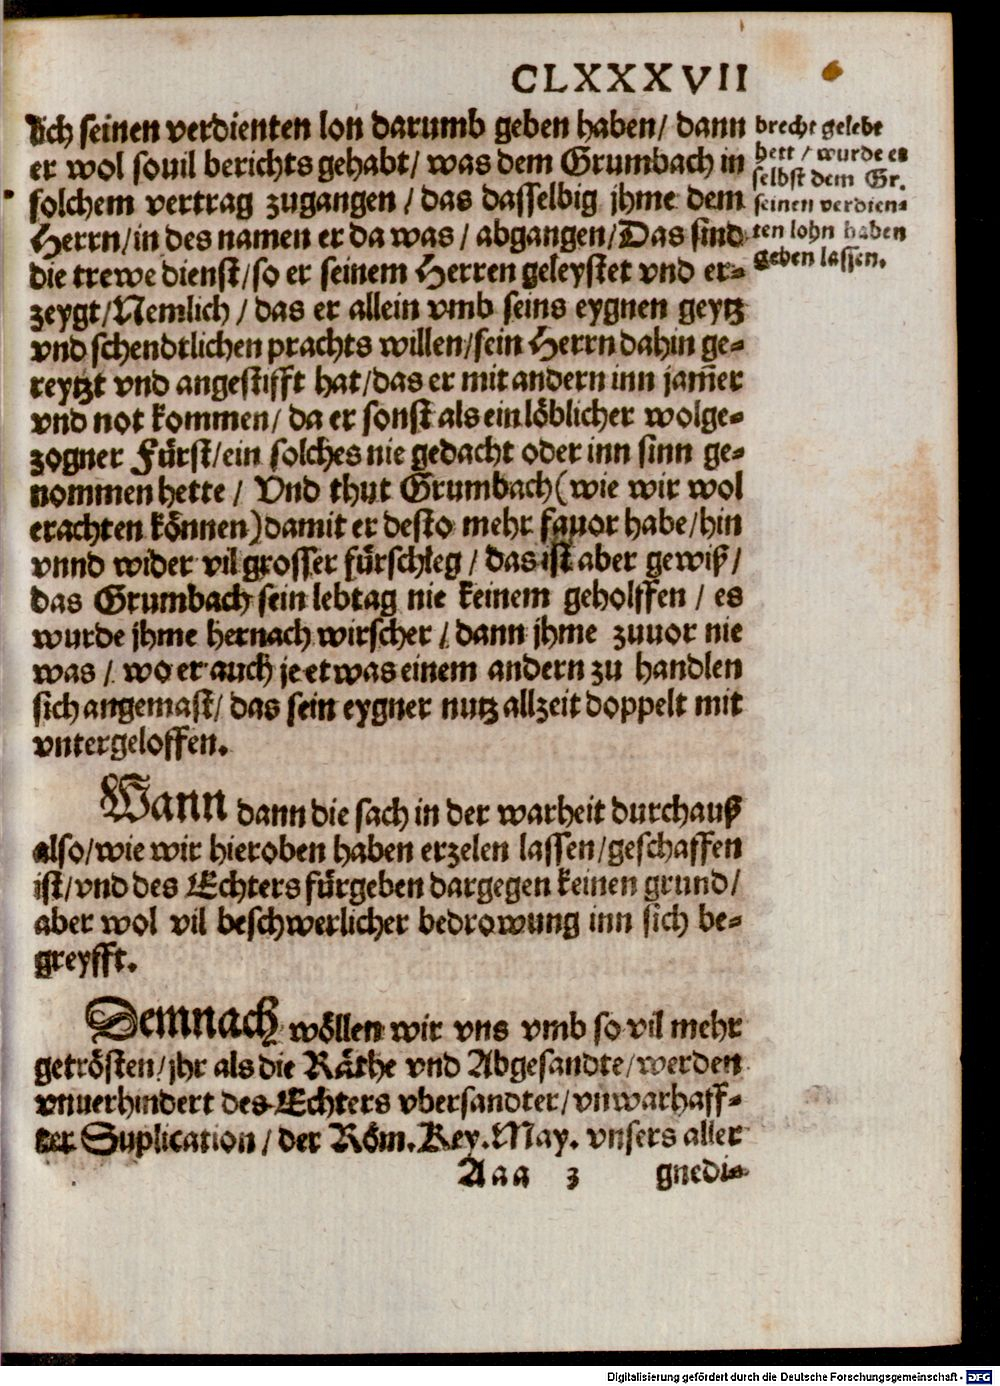 CLXXXVII
lich seinen verdienten lon darumb geben haben/ dann
er wol souil berichts gehabt/ was dem Grumbach in
solchem vertrag zugangen / das dasselbig jhme dem
Herrn/in des namen er da was / abgangen/Das sind
die trewe dienst/so er seinem Herren geleystet vnd er-
zeygt/Nemlich / das er allein vmb seins eygnen geytz
vnd schendtlichen prachts willen/sein Herrn dahin ge-
reytzt vnd angestifft hat/das er mit andern inn jam̃er
vnd not kommen/ da er sonst als ein löblicher wolge-
zogner Fürst/ein solches nie gedacht oder inn sinn ge-
nommen hette / Vnd thut Grumbach(wie wir wol
erachten können)damit er desto mehr fauor habe/hin
vnnd wider vil grosser fürschleg / das ist aber gewiß/
das Grumbach sein lebtag nie keinem geholffen / es
wurde jhme hernach wirscher / dann jhme zuuor nie
was / wo er auch je etwas einem andern zu handlen
sich angemast/ das sein eygner nutz allzeit doppelt mit
vntergeloffen.
brecht gelebt
hett / wurde es
selbst dem Gr.
seinen verdien-
ten lohn haben
geben lassen.
Wann dann die sach in der warheit durchauß
also/wie wir hieroben haben erzelen lassen/geschaffen
ist/vnd des Echters fürgeben dargegen keinen grund/
aber wol vil beschwerlicher bedrowung inn sich be-
greyfft.
Demnach wöllen wir vns vmb so vil mehr
getrösten/jhr als die Räthe vnd Abgesandte/werden
vnuerhindert des Echters vbersandter/vnwarhaff-
ter Suplication/ der Röm. Key. May. vnsers aller
Aaa 3 gnedi-
Digitalisierung gefördert durch die Deutsche Forschungsgemeinschaft - DFG